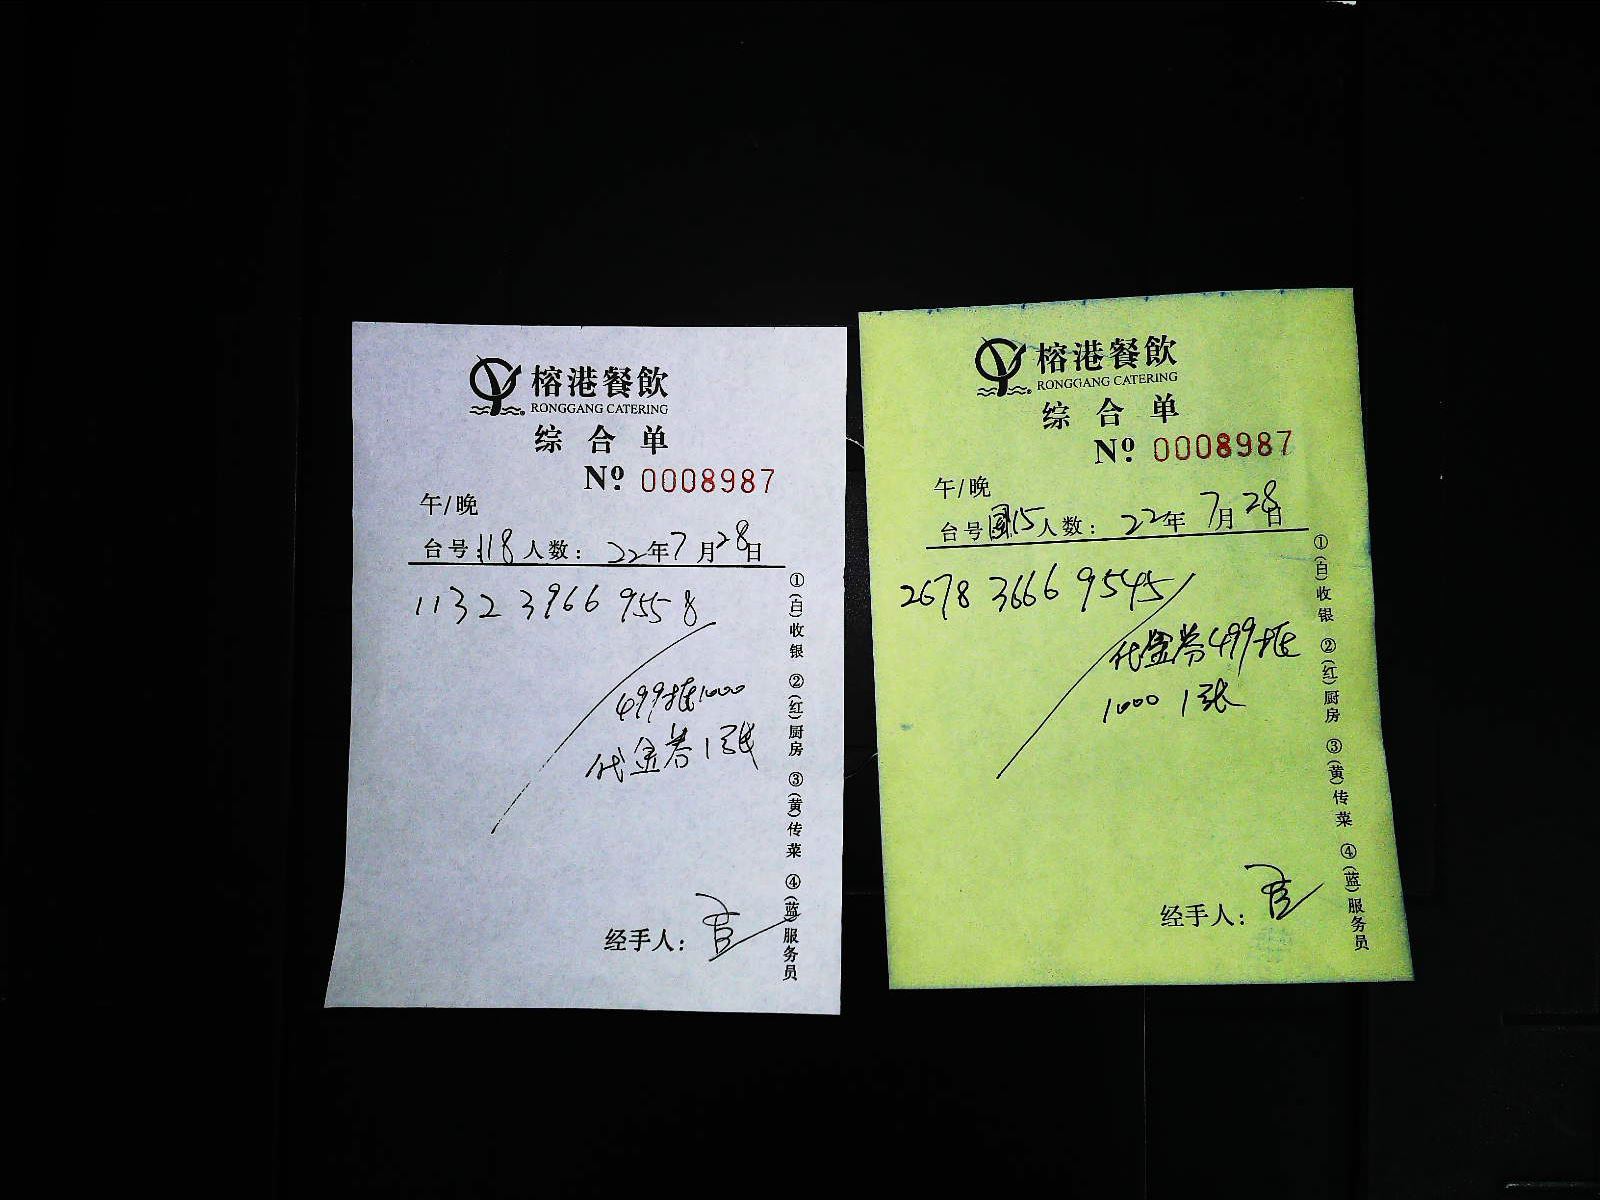 榕港餐飲
RONGGANG CATERING
综合单
Nº 0008987
午/晚
台号:118 人数: 22年7月28日
1132 3966 9558
499抵1000
代金券1张
经手人:
①(白)收银 ②(红)厨房 ③(黄)传菜 ④(蓝)服务员
榕港餐飲
RONGGANG CATERING
综合单
Nº 0008987
午/晚
台号 15 人数: 22年7月28日
2678 3666 9545
代金券499抵
1000 1张
经手人:
①(白)收银 ②(红)厨房 ③(黄)传菜 ④(蓝)服务员